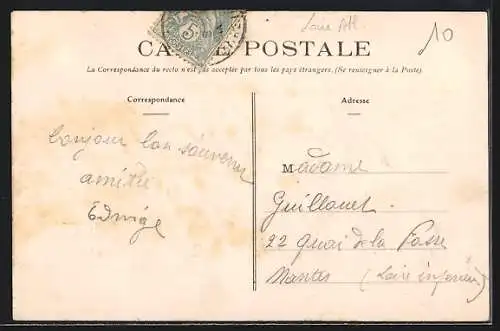 Loire Atl.
10
5
CARTE POSTALE
La Correspondance du recto n'est pas acceptée par tous les pays étrangers. (Se renseigner à la Poste).
Correspondance
bonjour bon souvenir
amitié
Edwige
Adresse
Madame
Guillouet
22 Quai de la Fosse
Nantes (Loire inférieure)